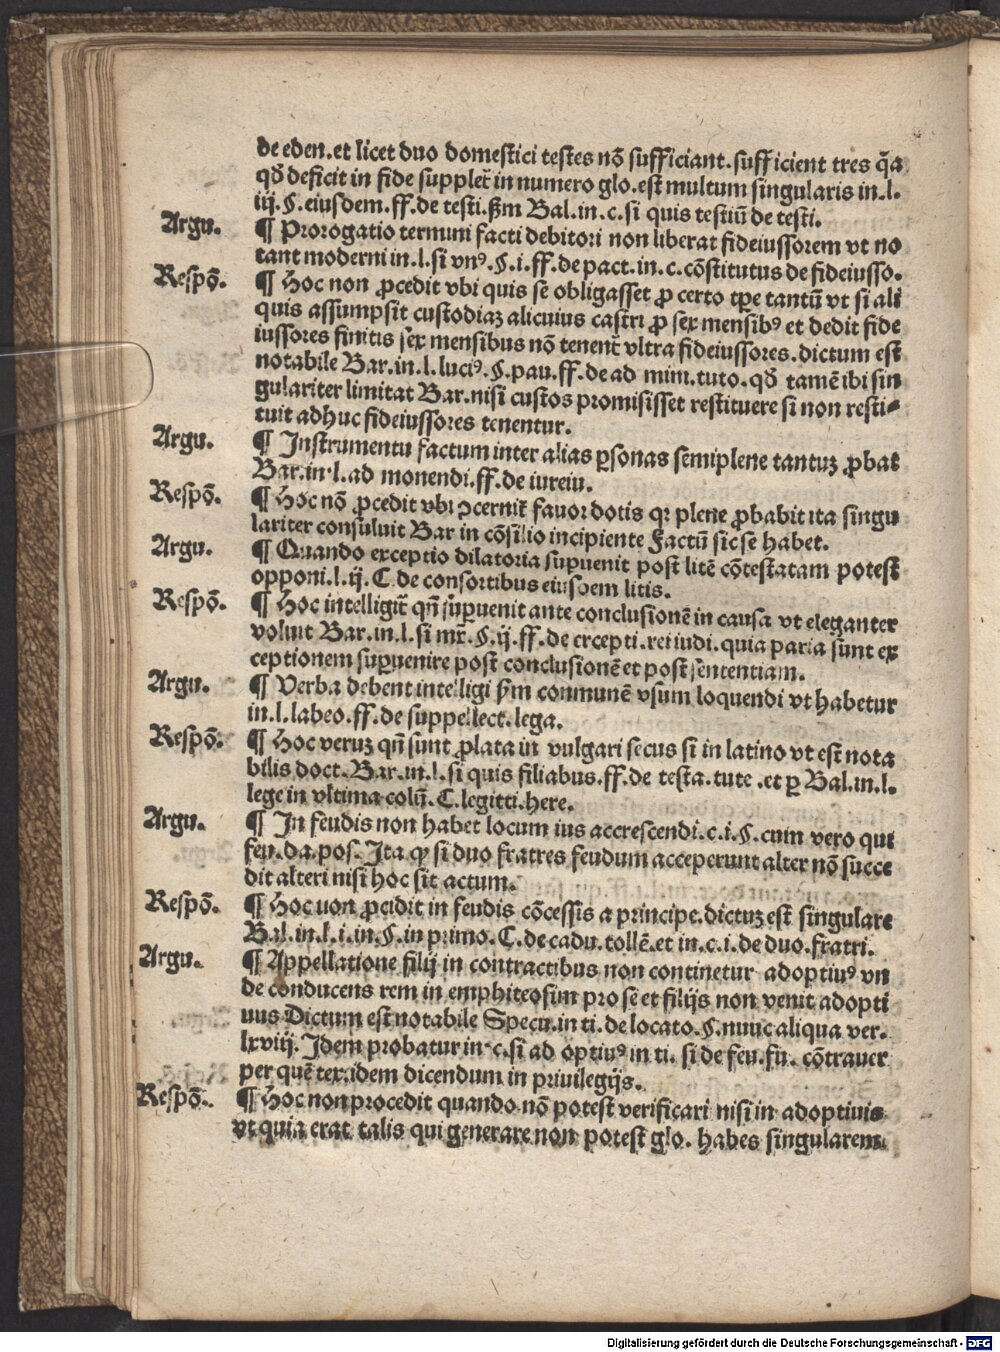 de eden. et licet duo domestici testes nō sufficiant. sufficient tres q̄a
qd̄ deficit in fide supplet̄ in numero glo. est multum singularis in. l.
iij. §. eiusdem. ff. de testi. ẜm Bal. in. c. si quis testiū de testi.
Argu. ¶ Prorogatio termini facti debitori non liberat fideiussorem vt no
tant moderni in. l. si vnꝰ. §. i. ff. de pact. in. c. cōstitutus de fideiusso.
Respō. ¶ Hoc non ꝓcedit vbi quis se obligasset ꝓ certo tꝑe tantū vt si ali
quis assumpsit custodiaꝫ alicuius castri ꝓ sex mensibꝰ et dedit fide
iussores finitis sex mensibus nō tenent̄ vltra fideiussores. dictum est
notabile Bar. in. l. luciꝰ. §. pau. ff. de ad mini. tuto. qd̄ tamē ibi sin
gulariter limitat Bar. nisi custos promisisset restituere si non resti⸗
tuit adhuc fideiussores tenentur.
Argu. ¶ Instrumentū factum inter alias ꝑsonas semiplene tantuꝫ ꝓbat
Bar. in. l. ad monendi. ff. de iureiu.
Respō. ¶ Hoc nō ꝓcedit vbi ꝯcernit̄ fauor dotis qꝛ plene ꝓbabit ita singu
lariter consuluit Bar in cōsilio incipiente Factū sic se habet.
Argu. ¶ Quando exceptio dilatoria supuenit post litē cōtestatam potest
opponi. l. ij. C. de consortibus eiusdem litis.
Respō. ¶ Hoc intelligit̄ qn̄ supuenit ante conclusionē in causa vt eleganter
voluit Bar. in. l. si mr̄. §. ij. ff. de ercepti. rei iudi. quia paria sunt ex
ceptionem supuenire post conclusionē et post sententiam.
Argu. ¶ Verba debent intelligi ẜm communē vsum loquendi vt habetur
in. l. labeo. ff. de suppellect. lega.
Respō. ¶ Hoc veruꝫ qn̄ sunt ꝓlata in vulgari secus si in latino vt est nota
bilis doct. Bar. in. l. si quis filiabus. ff. de testa. tute . et ꝑ Bal. in. l.
lege in vltima colū. C. legitti. here.
Argu. ¶ In feudis non habet locum ius accrescendi. c. i. §. cum vero qui
feu. da. pos. Ita ꝙ si duo fratres feudum acceperunt alter nō succe
dit alteri nisi hoc sit actum.
Respō. ¶ Hoc uon ꝓcidit in feudis cōcessis a principe. dictuꝫ est singulare
Bal. in. l. i. in. §. in primo. C. de cadu. tollē. et in. c. i. de duo. fratri.
Argu. ¶ Appellatione filij in contractibus non continetur adoptiuꝰ vn
de conducens rem in emphiteosim pro se et filijs non venit adopti
uus Dictum est notabile Specu. in ti. de locato. §. nunc aliqua ver.
lxviij. Idem probatur in. c. si ad optiuꝰ in ti. si de feu. fu. cōtrauer
per quē tex. idem dicendum in priuilegijs.
Respō. ¶ Hoc non procedit quando nō potest verificari nisi in adoptiuis
vt quia erat talis qui generare non potest glo. habes singularem.
Digitalisierung gefördert durch die Deutsche Forschungsgemeinschaft - DFG